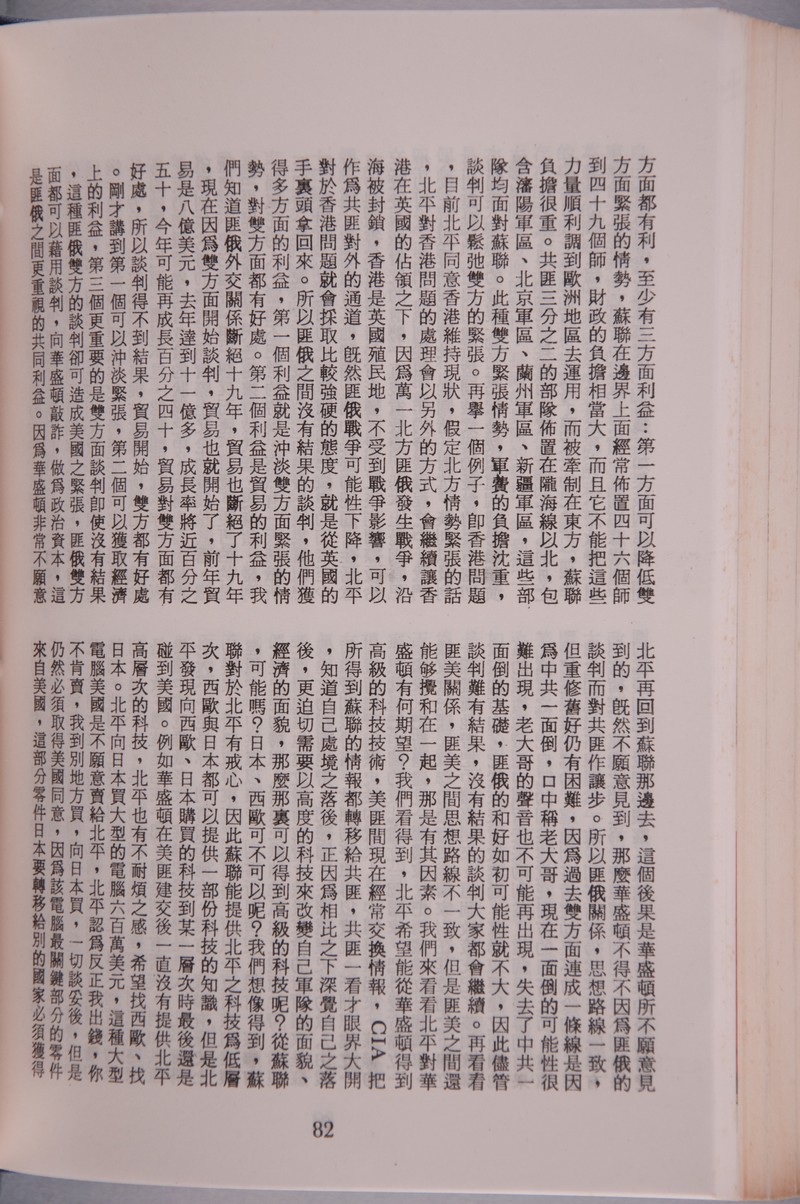 方面都有利，至少有三方面利益：第一方面可以降低雙
方面緊張的情勢，蘇聯在邊界上面經常佈置四十六個師
到四十九個師，財政的負擔相當大，而且它不能把這些
力量順利調到歐洲地區去運用，而被牽制在東方，蘇聯
負擔很重。共匪三分之二的部隊佈置在隴海線以北，包
含瀋陽軍區、北京軍區、蘭州軍區、新疆軍區，這些部
隊均面對蘇聯。此種雙方緊張情勢，軍費的負擔沈重，
談判可以鬆弛雙方的緊張。再舉一個例子，卽香港問題
，目前北平同意香港維持現狀，假定北方情勢緊張的話
，北平對香港問題的處理會以另外的方式，會繼續讓香
港在英國的佔領之下，因爲萬一北方匪俄發生戰爭，沿
海被封鎖，香港是英國殖民地，不受到戰爭影響，可以
作爲共匪對外的通道，旣然匪俄戰爭可能性下降，北平
對於香港問題就會採取比較強硬的態度，就是從英國的
手裏頭拿回來。所以匪俄之間沒有結果的談判，他們獲
得多方面的利益，第一個利益就是沖淡雙方面緊張的情
勢，對雙方面都有好處。第二個利益是貿易的利益，我
們知道匪俄外交關係斷絕十九年，貿易也斷絕了十九年
，現在因爲雙方面開始談判，貿易也就開始了，前年貿
易是八億美元，去年達到十一億多，成長率將近百分之
五十，今年可能再成長百分之四十，貿易對雙方面都有
好處，所以談判得不到結果，貿易開始，雙方都有好處
。剛才講到第一個可以沖淡緊張，第二個可以獲取經濟
上的利益，第三個更重要的是雙方面談判卽使沒有結果
，這種匪俄雙方的談判卻可造成美國之緊張，匪俄雙方
面都可以藉用談判，向華盛頓敲詐，做爲政治資本，這
是匪俄之間更重視的共同利益。因爲華盛頓非常不願意
北平再回到蘇聯那邊去，這個後果是華盛頓所不願意見
到的，旣然不願意見到，那麼華盛頓不得不因爲匪俄的
談判而對共匪作讓步。所以匪俄關係，思想路線一致，
但重修舊好仍有困難，因爲過去雙方面連成一條線是因
爲中共一面倒，口中稱老大哥，現在一面倒的可能性很
難出現，老大哥的聲音也不可能再出現，失去了中共一
面倒的基礎，匪俄的和好如初可能性就不大，因此儘管
談判難有結果，沒有結果的談判大家都會繼續。再看看
匪美關係，匪美之間思想路線不一致，但是匪美之間還
能够攪和在一起，那是有其因素。我們來看看北平對華
盛頓有何期望？我們看得到，北平希望能從華盛頓得到
高級的科技技術，美匪間現在經常交換情報，CIA 把
所得到蘇聯的情報都轉移給共匪，共匪一看才眼界大開
，知道自己處境之落後，正因爲相比之下深覺自己之落
後，更迫切需要以高度的科技來改變自己軍隊的面貌、
經濟的面貌，那麼那裏可以得到高級的科技呢？從蘇聯
，可能嗎？日本、西歐可不可以呢？我們想像得到，蘇
聯對於北平有戒心，因此蘇聯能提供北平之科技爲低層
次，西歐與日本都可以提供一部份科技的知識，但是北
平發現向西歐、日本購買的科技到某一層次時最後還是
碰到美國。例如華盛頓在美匪建交後一直沒有提供北平
高層次的科技，北平也有不耐煩之感，希望找西歐、找
日本。北平向日本買大型的電腦六百萬美元，這種大型
電腦美國是不願意賣給北平，北平認爲反正我出錢，你
不肯賣，我到別地方買，向日本買，一切談妥後，但是
仍然必須取得美國同意，因爲該電腦最關鍵部分的零件
來自美國，這部分零件日本要轉移給別的國家必須獲得
82